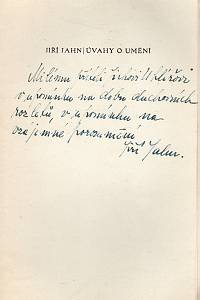 JIŘÍ JAHN / ÚVAHY O UMĚNÍ
Milému příteli
v upomínku na dobu duchovních
rozletů, v upomínku na
vzájemné porozumění
Jiří Jahn.